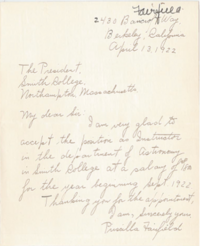 Fairfield
2480 Bancroft Way
Berkeley, California
April 13, 1922
The President,
Smith College,
Northampton Massachusetts
My dear Sir
I am very glad to
accept the position as Instructor
in the department of Astronomy
in Smith College at a salary of
for the year beginning Sept 1922
Thanking you for the appointment,
I am, Sincerely yours
Priscilla Fairfield